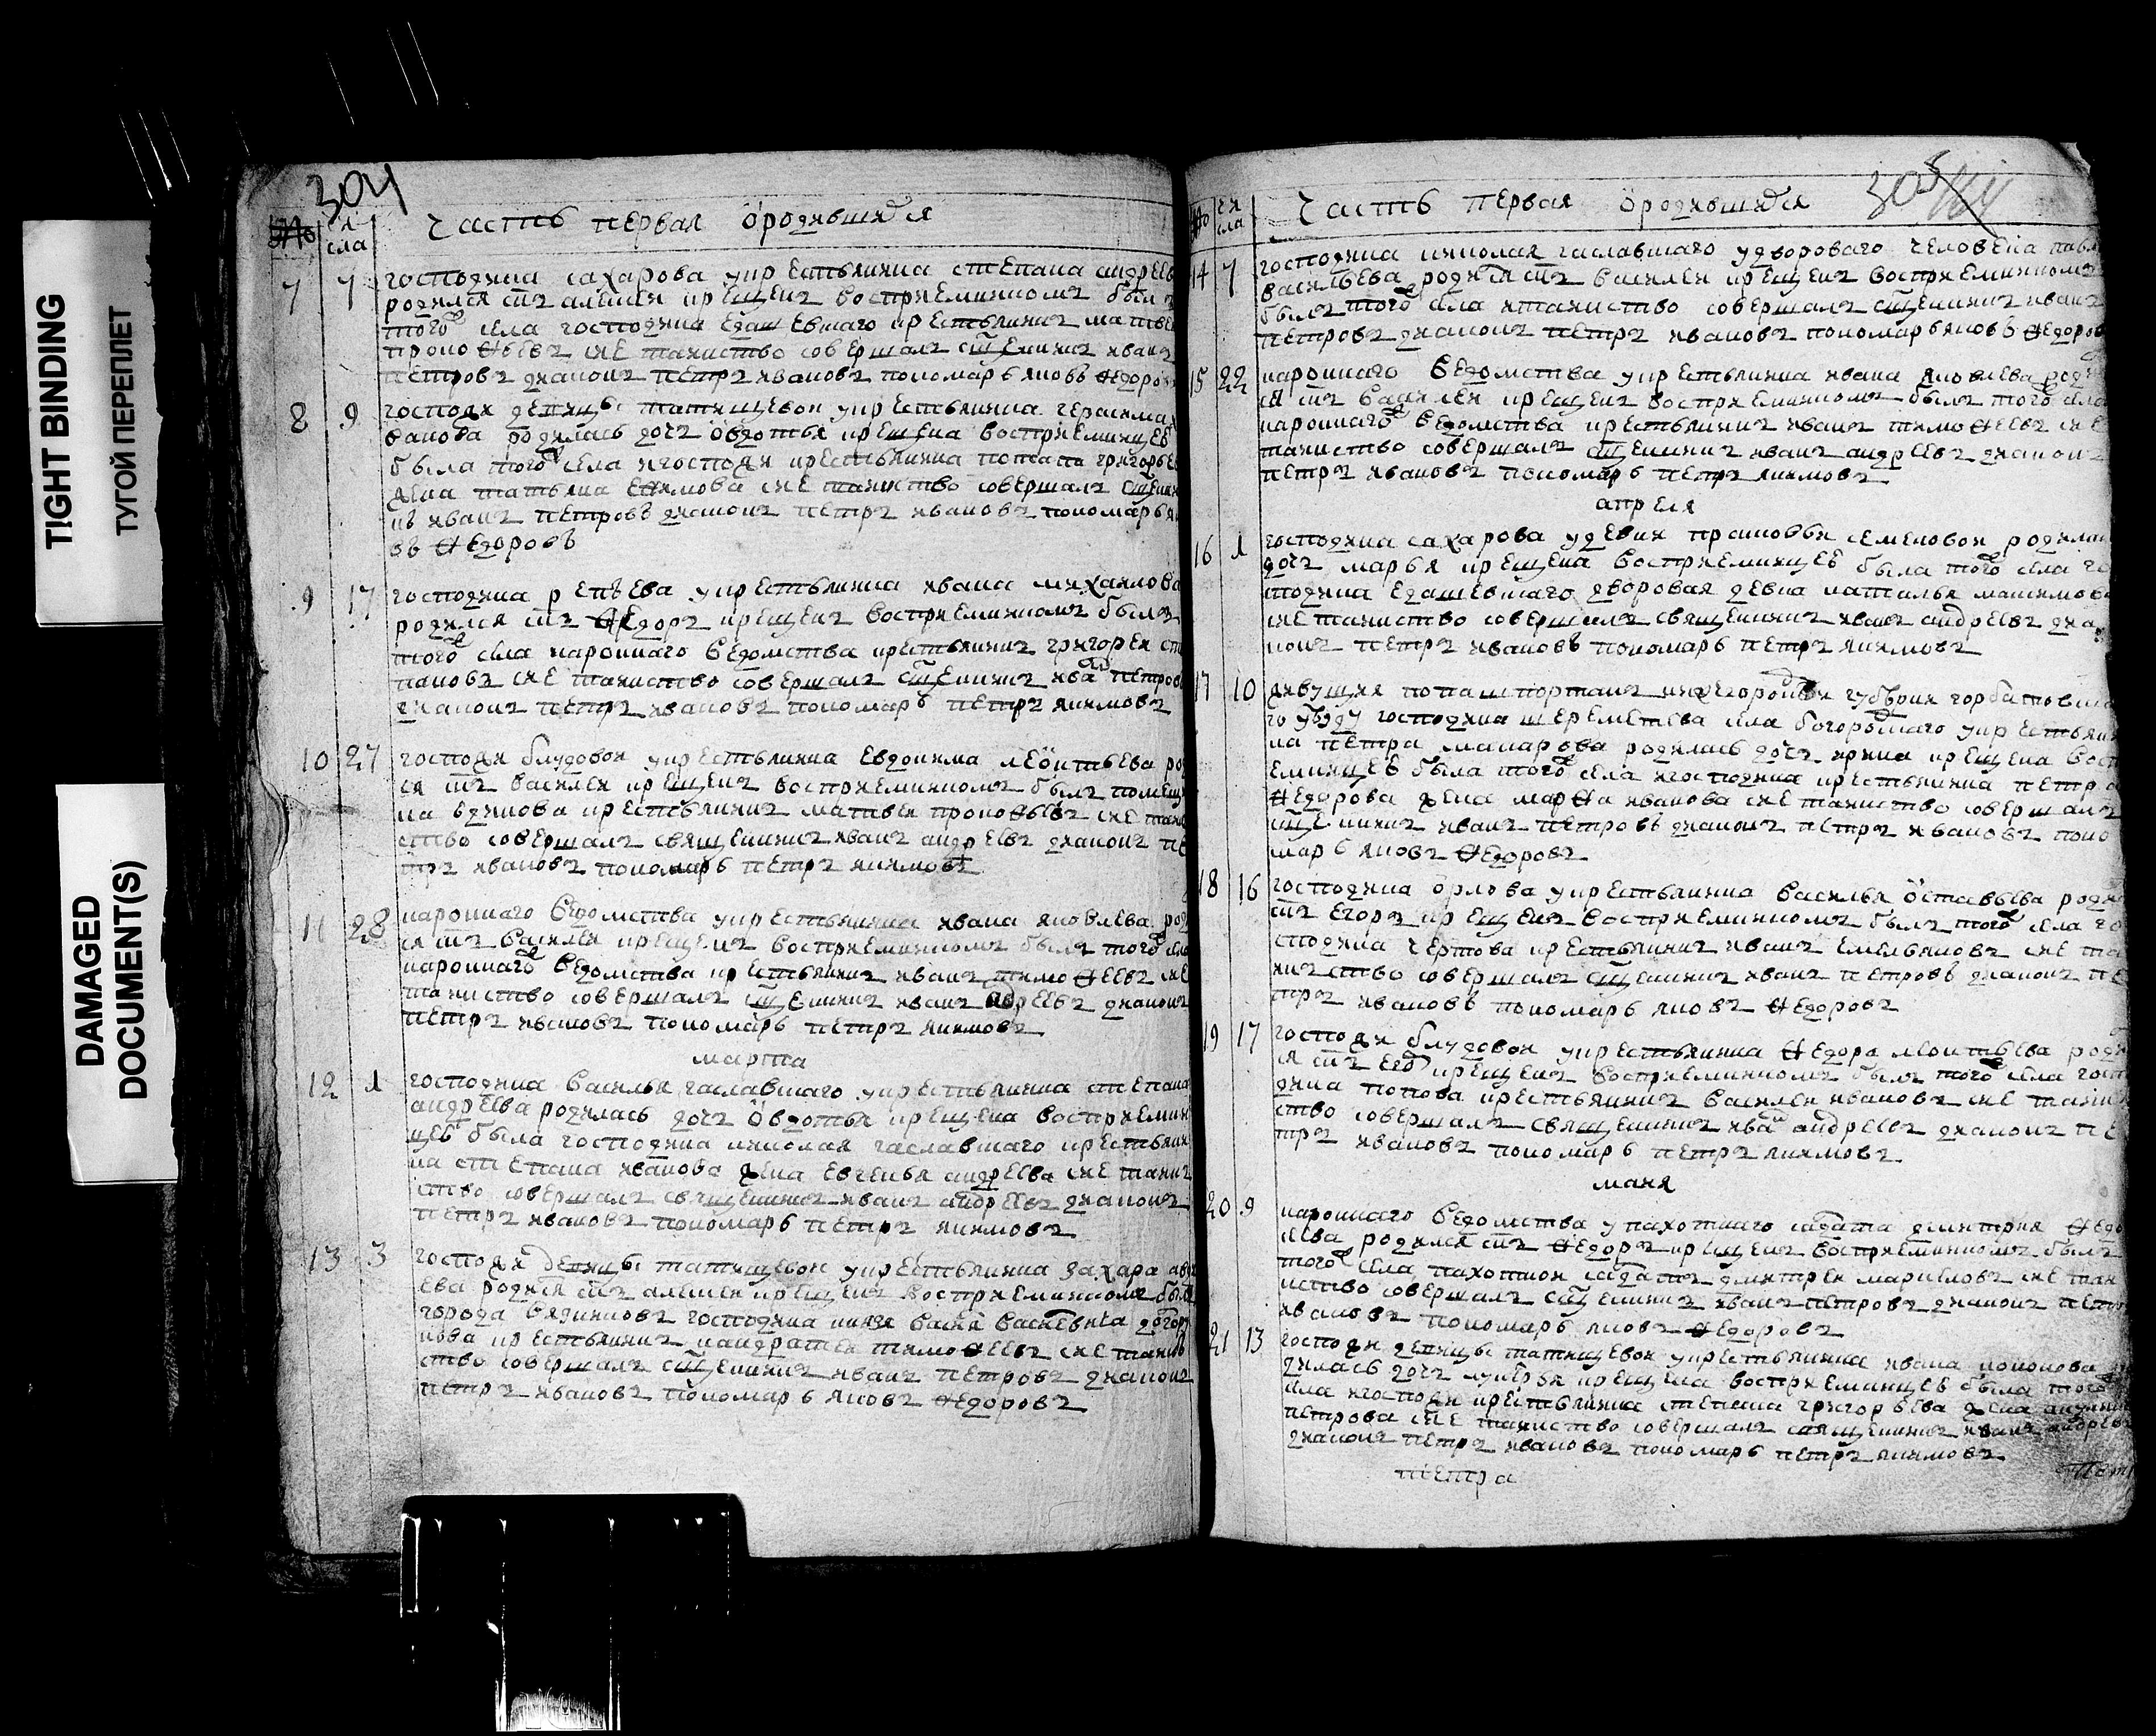 TIGHT BINDING
ТУГОЙ ПЕРЕПЛЕТ
DAMAGED
DOCUMENT(S)
304
№ чи
сла
часть первая о родившихся
7 7 господина сахарова у крестьянина степана андреев
родился сынъ алексей крещенъ восприемникомъ былъ
тогоже села господина крестьянинъ матвей
прокофьевъ сие таинство совершалъ сщенникъ иванъ
петровъ диаконъ петръ ивановъ пономарь яковъ федоров
8 9 госпожи девицы татищевой у крестьянина герасима
ванова родилась дочь овдотья крещена восприемницею
была тогоже села и госпожи крестьянина григорьев
жена татьяна ефимова сие таинство совершалъ сщенни
къ иванъ петровъ диаконъ петръ ивановъ пономарь як
въ федоровъ
9 17 господина репьева у крестьянина ивана михайлова
родился сынъ федоръ крещенъ восприемникомъ былъ
тогоже села кароннаго ведомства крестьянинъ григорей сте
пановъ сие таинство совершалъ сщенникъ иванъ петров
диаконъ петръ ивановъ пономарь петръ якимовъ
10 27 госпожи блудовой у крестьянина евдокима леонтьева род
ся сынъ василей крещенъ восприемникомъ былъ помещи
ка крестьянинъ матвей прокофьевъ сие таин
ство совершалъ священникъ иванъ андреевъ диаконъ пе
тръ ивановъ пономарь петръ якимовъ
11 28 кароннаго ведомства у крестьянина ивана яковлева род
ся сынъ василей крещенъ восприемникомъ былъ тогоже села
кароннагоже ведомства крестьянинъ иванъ тимофеевъ сие
таинство совершалъ сщенникъ иванъ андреевъ диаконъ
петръ ивановъ пономарь петръ якимовъ
марта
12 1 господина василья гаславскаго у крестьянина степана
андреева родилась дочь овдотья крещена восприемни
цею была господина николая гаславскаго крестьяни
на степана иванова жена евгенья андреева сие таин
ство совершалъ священникъ иванъ андреевъ диаконъ
петръ ивановъ пономарь петръ якимовъ
13 3 госпожи девицы татищевой у крестьянина захара ав
ева родился сынъ алексей крещенъ восприемникомъ былъ
города господина князя
крестьянинъ тимофеевъ сие таин
ство совершалъ сщенникъ иванъ петровъ диаконъ
петръ ивановъ пономарь яковъ федоровъ
305
№ чи
сла
часть первая о родившихся
14 7 господина николая гаславскаго у двороваго человека павл
васильева родился сынъ василей крещенъ восприемникомъ
былъ тогоже села таинство совершалъ сщенникъ иванъ
петровъ диаконъ петръ ивановъ пономарь яковъ федоров
15 22 кароннаго ведомства у крестьянина ивана яковлева роди
ся сынъ василей крещенъ восприемникомъ былъ тогоже села
кароннагоже ведомства крестьянинъ иванъ тимофеевъ сие
таинство совершалъ сщенникъ иванъ андреевъ диаконъ
петръ ивановъ пономарь петръ якимовъ
апреля
16 1 господина сахарова у девки прасковьи семеновой родилас
дочь марья крещена восприемницею была тогоже села го
сподина дворовая девка наталья максимова
сие таинство совершалъ священникъ иванъ андреевъ диа
конъ петръ ивановъ пономарь петръ якимовъ
17 10 живущия по пашпортамъ нижегородской губернии горбатовска
го уезду господина шереметева села богородскаго у крестьяни
на петра макарова родилась дочь ирина крещена воспр
емницею была тогоже села и господина крестьянина петра
федорова жена марфа иванова сие таинство совершалъ
сщенникъ иванъ петровъ диаконъ петръ ивановъ поно
марь яковъ федоровъ
18 16 господина орлова у крестьянина василья остафьева родил
сынъ егоръ крещенъ восприемникомъ былъ тогоже села го
сподина чертова крестьянинъ иванъ емельяновъ сие та
инство совершалъ сщенникъ иванъ петровъ диаконъ пе
тръ ивановъ пономарь яковъ федоровъ
19 17 госпожи блудовой у крестьянина федора леонтьева роди
ся сынъ егоръ крещенъ восприемникомъ былъ тогоже села госп
дина попова крестьянинъ василей ивановъ сие таин
ство совершалъ священникъ иванъ андреевъ диаконъ пе
тръ ивановъ пономарь петръ якимовъ
маия
20 9 кароннаго ведомства у пахотнаго салдата дмитрия федо
сеева родился сынъ федоръ крещенъ восприемникомъ былъ
тогоже села пахотной салдатъ дмитрей маркеловъ сие таи
нство совершалъ сщенникъ иванъ петровъ диаконъ петръ
ивановъ пономарь яковъ федоровъ
21 13 госпожи девицы татищевой у крестьянина ивана кононова
дилась дочь лукерья крещена восприемницею была тогоже
села и госпожи крестьянина степана григорьева жена акулина
петрова сие таинство совершалъ священникъ иванъ андреев
диаконъ петръ ивановъ пономарь петръ якимовъ
петра